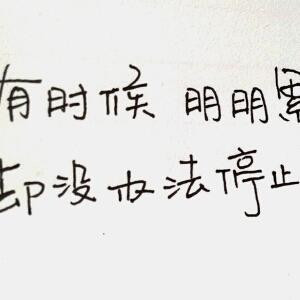 有时候 明明累
却没办法停止